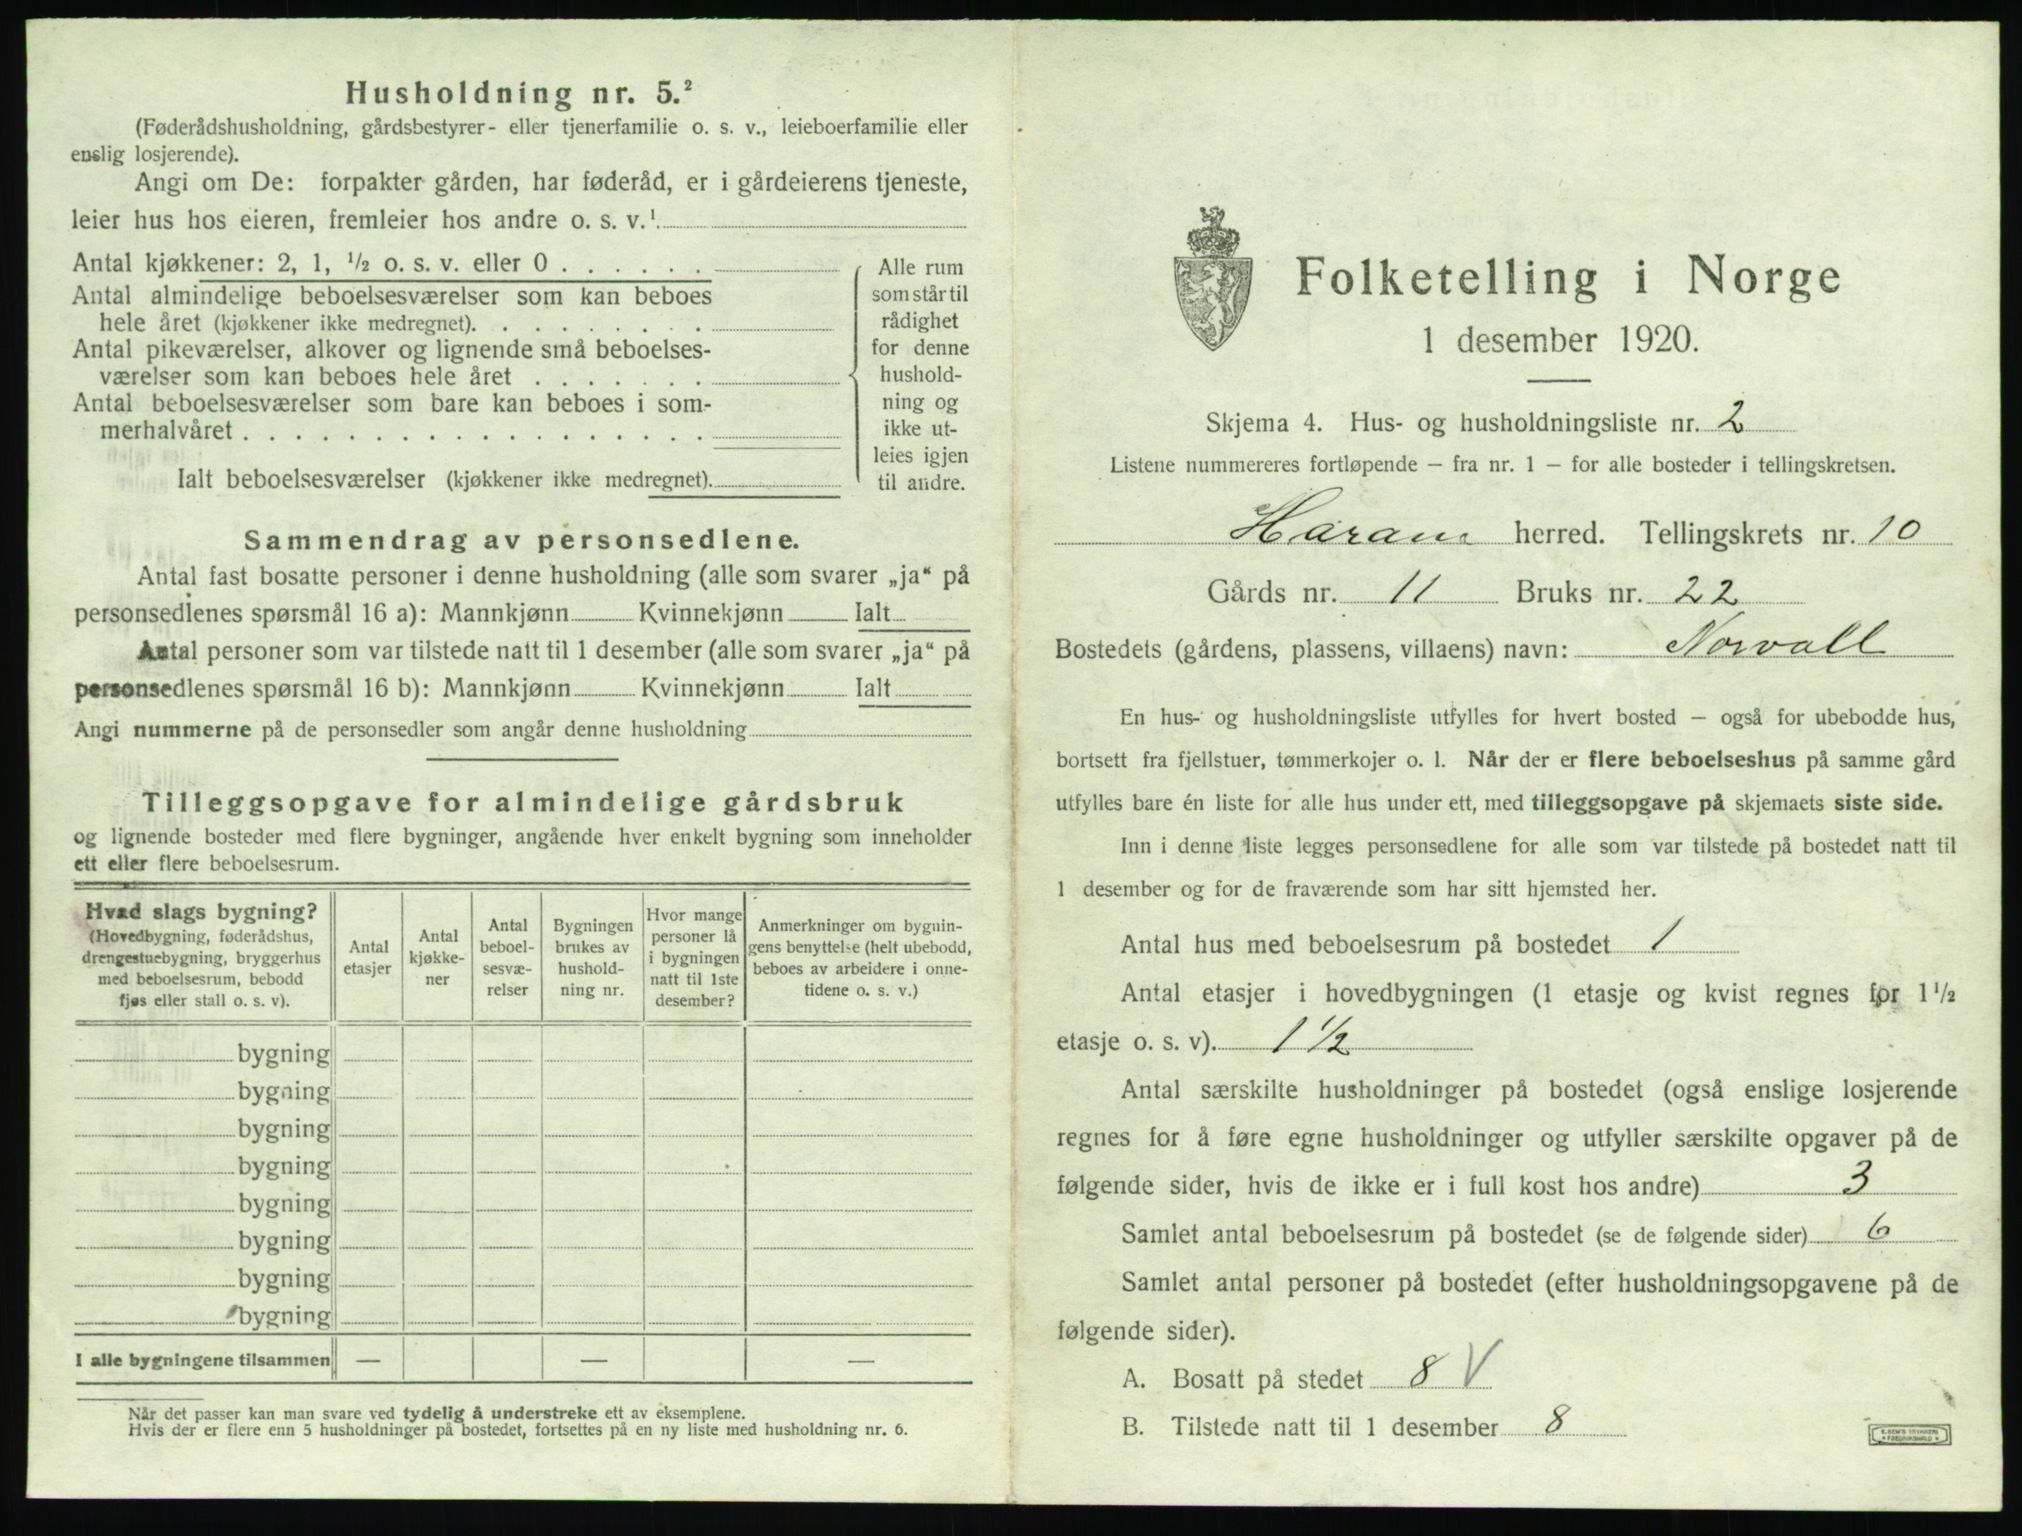 Husholdning nr. 5.²
(Føderådshusholdning, gårdsbestyrer- eller tjenerfamilie o. s. v., leieboerfamilie eller
enslig losjerende).
Angi om De: forpakter gården, har føderåd, er i gårdeierens tjeneste,
leier hus hos eieren, fremleier hos andre o. s. v.¹
Antal kjøkkener: 2, 1, ½ o. s. v. eller 0 . . . . . .
Antal almindelige beboelsesværelser som kan beboes
hele året (kjøkkener ikke medregnet). . . . . . . . .
Antal pikeværelser, alkover og lignende små beboelses-
værelser som kan beboes hele året . . . . . . .
Antal beboelsesværelser som bare kan beboes i som-
merhalvåret . . . . . . . . . . . . . . . . . .
Ialt beboelsesværelser (kjøkkener ikke medregnet).
Alle rum
som står til
rådighet
for denne
hushold-
ning og
ikke ut-
leies igjen
til andre.
Sammendrag av personsedlene.
Antal fast bosatte personer i denne husholdning (alle som svarer „ja“ på
personsedlenes spørsmål 16 a): Mannkjønn Kvinnekjønn Ialt
Antal personer som var tilstede natt til 1 desember (alle som svarer „ja“ på
personsedlenes spørsmål 16 b): Mannkjønn Kvinnekjønn Ialt
Angi nummerne på de personsedler som angår denne husholdning
Tilleggsopgave for almindelige gårdsbruk
og lignende bosteder med flere bygninger, angående hver enkelt bygning som inneholder
ett eller flere beboelsesrum.
Hvad slags bygning?
(Hovedbygning, føderådshus,
drengestuebygning, bryggerhus
med beboelsesrum, bebodd
fjøs eller stall o. s. v).
Antal
etasjer
Antal
kjøkke-
ner
Antal
beboel-
sesvæ-
relser
Bygningen
brukes av
hushold-
ning nr.
Hvor mange
personer lå
i bygningen
natt til 1ste
desember?
Anmerkninger om bygnin-
gens benyttelse (helt ubebodd,
beboes av arbeidere i onne-
tidene o. s. v.)
bygning
bygning
bygning
bygning
bygning
bygning
bygning
bygning
I alle bygningene tilsammen — — —
Når det passer kan man svare ved tydelig å understreke ett av eksemplene.
Hvis der er flere enn 5 husholdninger på bostedet, fortsettes på en ny liste med husholdning nr. 6.
Folketelling i Norge
1 desember 1920.
Skjema 4. Hus- og husholdningsliste nr. 2
Listene nummereres fortløpende – fra nr. 1 – for alle bosteder i tellingskretsen.
Haram herred. Tellingskrets nr. 10
Gårds nr. 11 Bruks nr. 22
Bostedets (gårdens, plassens, villaens) navn: Norvall
En hus- og husholdningsliste utfylles for hvert bosted – også for ubebodde hus,
bortsett fra fjellstuer, tømmerkojer o. l. Når der er flere beboelseshus på samme gård
utfylles bare én liste for alle hus under ett, med tilleggsopgave på skjemaets siste side.
Inn i denne liste legges personsedlene for alle som var tilstede på bostedet natt til
1 desember og for de fraværende som har sitt hjemsted her.
Antal hus med beboelsesrum på bostedet 1
Antal etasjer i hovedbygningen (1 etasje og kvist regnes for 1½
etasje o. s. v). 1½
Antal særskilte husholdninger på bostedet (også enslige losjerende
regnes for å føre egne husholdninger og utfyller særskilte opgaver på de
følgende sider, hvis de ikke er i full kost hos andre) 3
Samlet antal beboelsesrum på bostedet (se de følgende sider) 6
Samlet antal personer på bostedet (efter husholdningsopgavene på de
følgende sider).
A. Bosatt på stedet 8 V
B. Tilstede natt til 1 desember 8